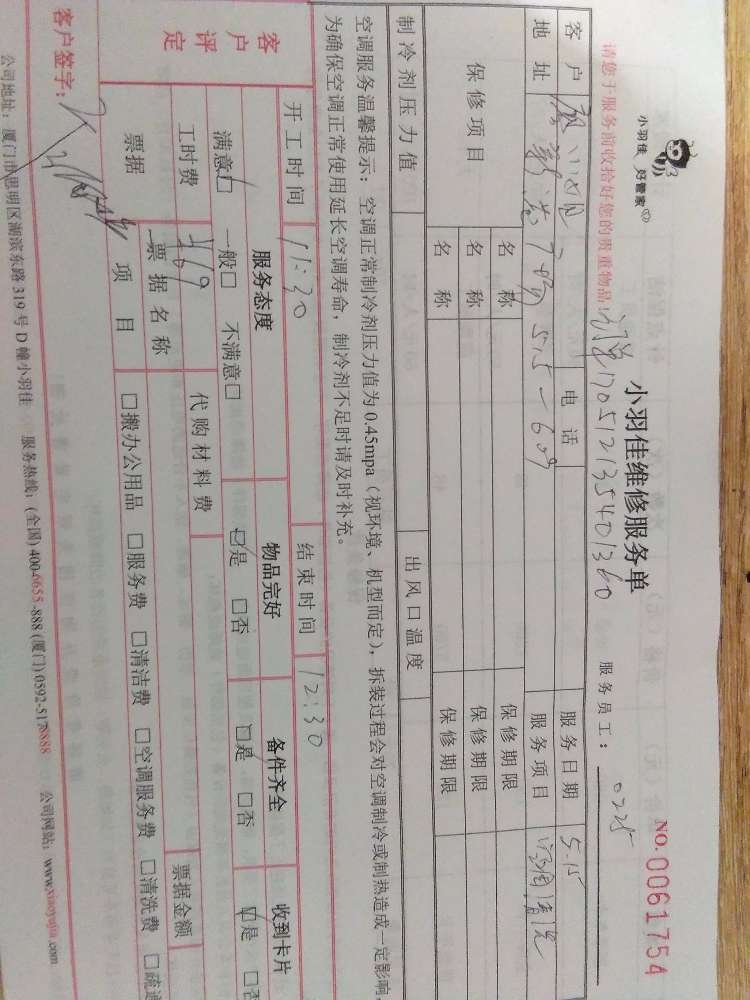 小羽佳 好管家
小羽佳维修服务单
NO. 0061754
请您于服务前收拾好您的贵重物品!
170512135401360
服务员工: 0225
客户
电话
服务日期 5.15
地址
515-609
服务项目
保修项目
名称
保修期限
名称
保修期限
名称
保修期限
制冷剂压力值
出风口温度
空调服务温馨提示: 空调正常制冷剂压力值为0.45mpa(视环境、机型而定), 拆装过程会对空调制冷或制热造成一定影响
为确保空调正常使用延长空调寿命, 制冷剂不足时请及时补充。
开工时间 11:30 结束时间 12:30
客户评定
服务态度 物品完好 备件齐全 收到卡片
满意□ 一般□ 不满意□ □是 □否 □是 □否 □是 □否
工时费 469 代购材料费
票据 票据名称 票据金额
项目 □搬办公用品 □服务费 □清洁费 □空调服务费 □清洗费 □疏通
客户签字:
公司地址: 厦门市思明区湖滨东路319号D幢小羽佳 服务热线: (全国) 400-6655-888 (厦门) 0592-5178888 公司网站: www.xiaoyujia.com